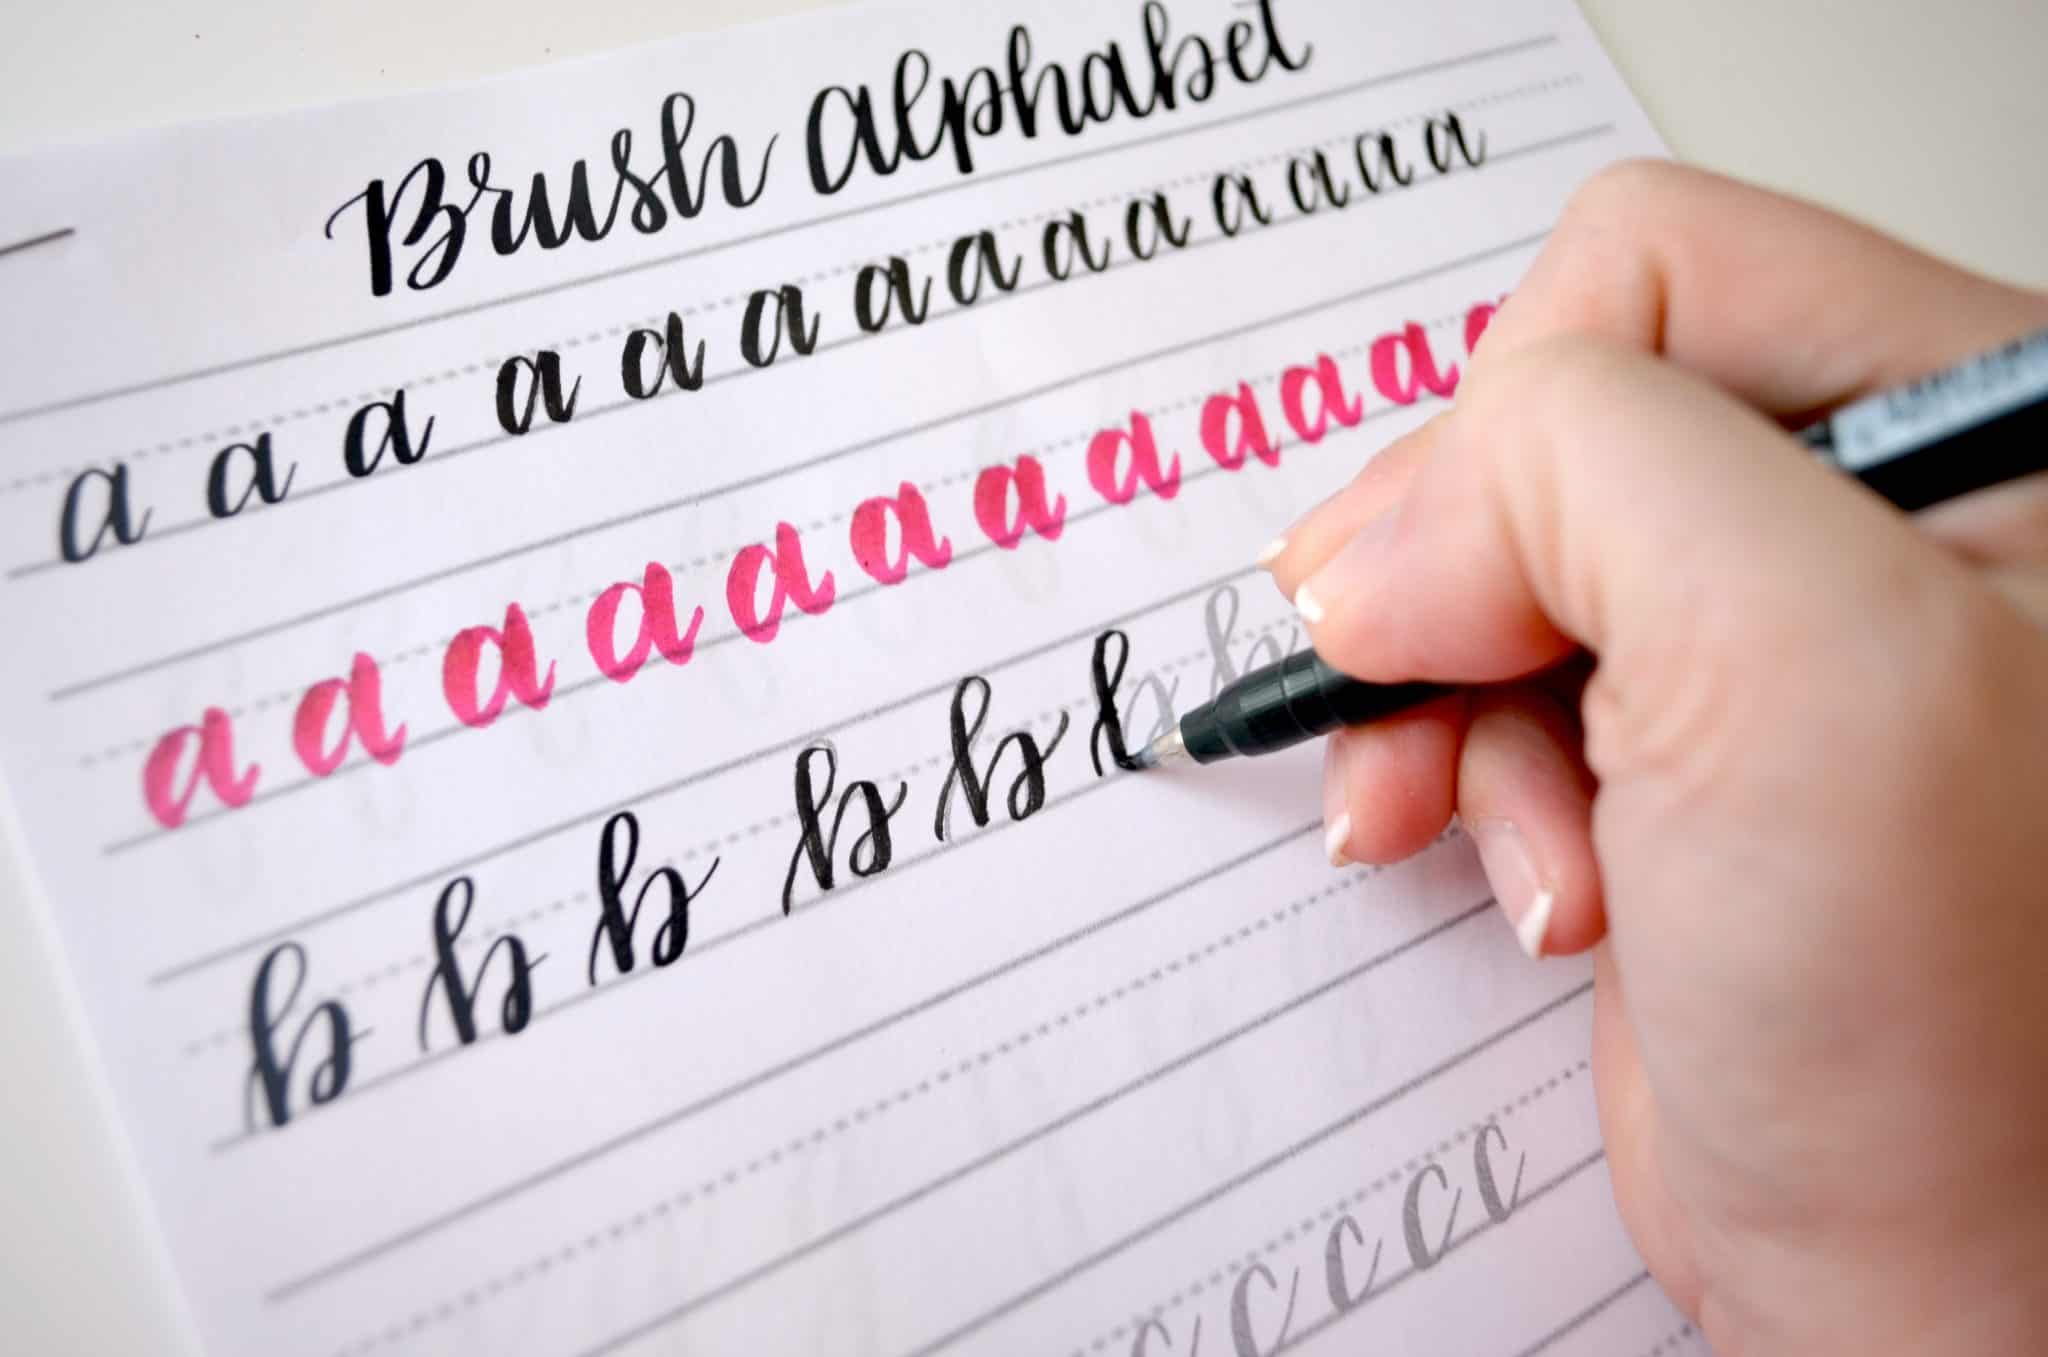 Brush alphabet
a a a a a a a a a a a a a a
a a a a a a a a a a a a
b b b b b b b
c c c c c